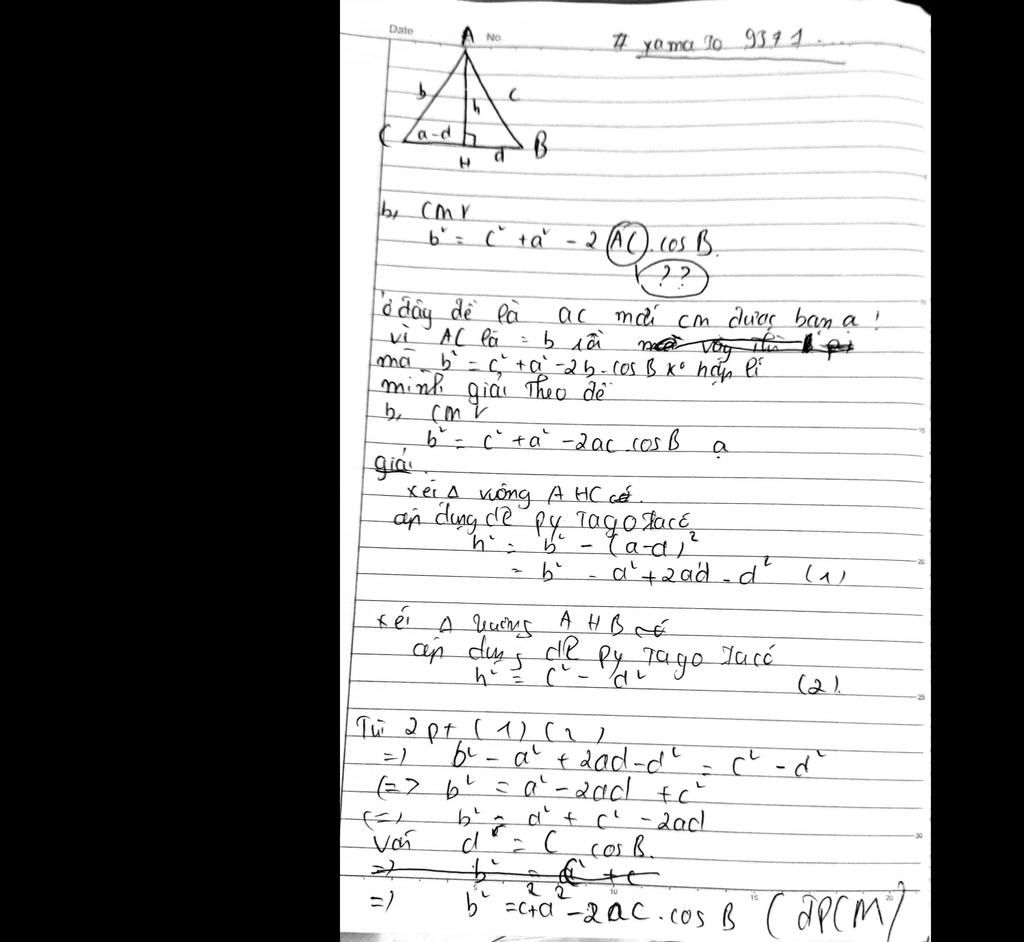 Date
No.
# yamato 9371....
A
b
c
h
C
a-d
H
d
B
b, CMr
b² = c² + a² - 2 AC. cos B.
??
ở đây đề là ac mới cm được bạn ạ!
vì AC là = b rồi
mà b² = c² + a² - 2b. cos B k° hợp lí
mình giải theo đề
b, CMr
b² = c² + a² - 2ac cos B ạ
giải
xét Δ vuông AHC có.
áp dụng đl py Tago ta có
h² = b² - (a-d)²
= b² - a² + 2ad - d² (1)
xét Δ vuông AHB có
áp dụng đl py Tago ta có
h² = c² - d² (2).
Từ 2 pt (1) (2)
=> b² - a² + 2ad - d² = c² - d²
<=> b² = a² - 2ad + c²
<=> b² = a² + c² - 2ad
với d = c cos B.
=> b² = c² + a² - 2ac. cos B (ĐPCM)